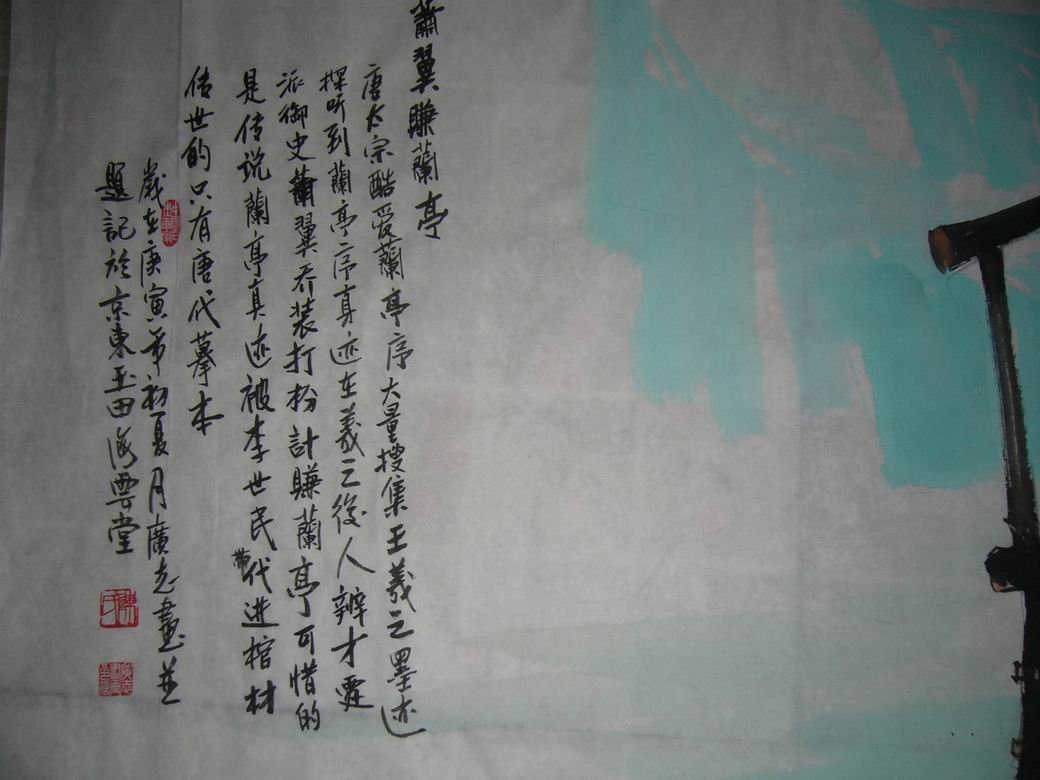 蕭翼賺蘭亭
唐太宗酷爱蘭亭序大量搜集王羲之墨迹
探听到蘭亭序真迹在羲之後人辨才處
派御史蕭翼乔装打扮計賺蘭亭可惜的
是传说蘭亭真迹被李世民代進棺材
带
传世的只有唐代摹本
歲在庚寅年初夏月廣志畫並
題記於京東玉田海雲堂